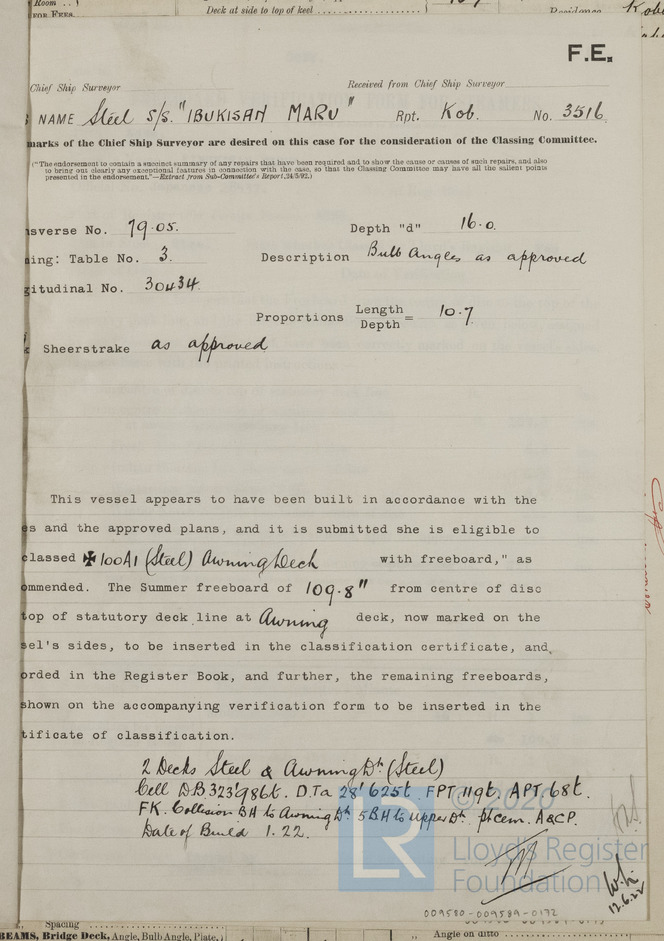 Room
Deck at side to top of keel
Residence Kobe
F.E.
Chief Ship Surveyor
Received from Chief Ship Surveyor
NAME Steel s/s. "IBUKISAN MARU" Rpt. Kob. No. 3516
marks of the Chief Ship Surveyor are desired on this case for the consideration of the Classing Committee.
("The endorsement to contain a succinct summary of any repairs that have been required and to show the cause or causes of such repairs, and also
to bring out clearly any exceptional features in connection with the case, so that the Classing Committee may have all the salient points
presented in the endorsement."—Extract from Sub-Committee's Report, 24/5/92.)
sverse No. 79.05. Depth "d" 16.0.
ing: Table No. 3. Description Bulb Angles as approved
gitudinal No. 30434.
Proportions Length
Depth = 10.7
Sheerstrake as approved
This vessel appears to have been built in accordance with the
s and the approved plans, and it is submitted she is eligible to
classed ✠ 100A1 (Steel) Awning Deck with freeboard," as
ommended. The Summer freeboard of 109.8" from centre of disc
top of statutory deck line at Awning deck, now marked on the
sel's sides, to be inserted in the classification certificate, and
orded in the Register Book, and further, the remaining freeboards,
shown on the accompanying verification form to be inserted in the
tificate of classification.
2 Decks Steel & Awning Dk (Steel)
Cell DB 323' 986t. D.Ta 28' 625t FPT 119t. APT. 68t.
FK. Collision BH to Awning Dk 5BH to Upper Dk pt cem. A&CP.
Date of Build 1.22.
© 2020
LR
Lloyd's Register
Foundation
12.6.22
009580-009589-0172
Spacing
BEAMS, Bridge Deck, Angle, Bulb Angle, Plate,
Angle on ditto